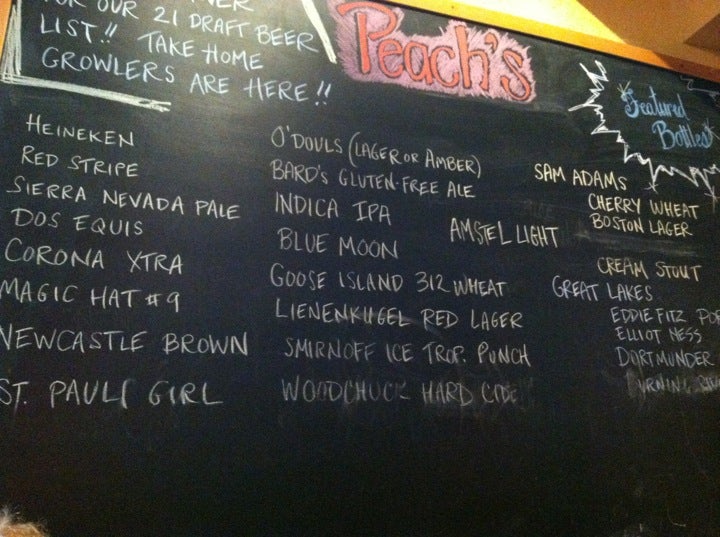 FOR OUR 21 DRAFT BEER
LIST!! TAKE HOME
GROWLERS ARE HERE!!
Peach's
Featured
Bottles
HEINEKEN
RED STRIPE
SIERRA NEVADA PALE
DOS EQUIS
CORONA XTRA
MAGIC HAT #9
NEWCASTLE BROWN
ST. PAULI GIRL
O'DOULS (LAGER OR AMBER)
BARD'S GLUTEN-FREE ALE
INDICA IPA
BLUE MOON
GOOSE ISLAND 312 WHEAT
LIENENKUGEL RED LAGER
SMIRNOFF ICE TROP. PUNCH
WOODCHUCK HARD CIDE
AMSTEL LIGHT
SAM ADAMS
CHERRY WHEAT
BOSTON LAGER
CREAM STOUT
GREAT LAKES
EDDIE FITZ
ELLIOT NESS
DORTMUNDER